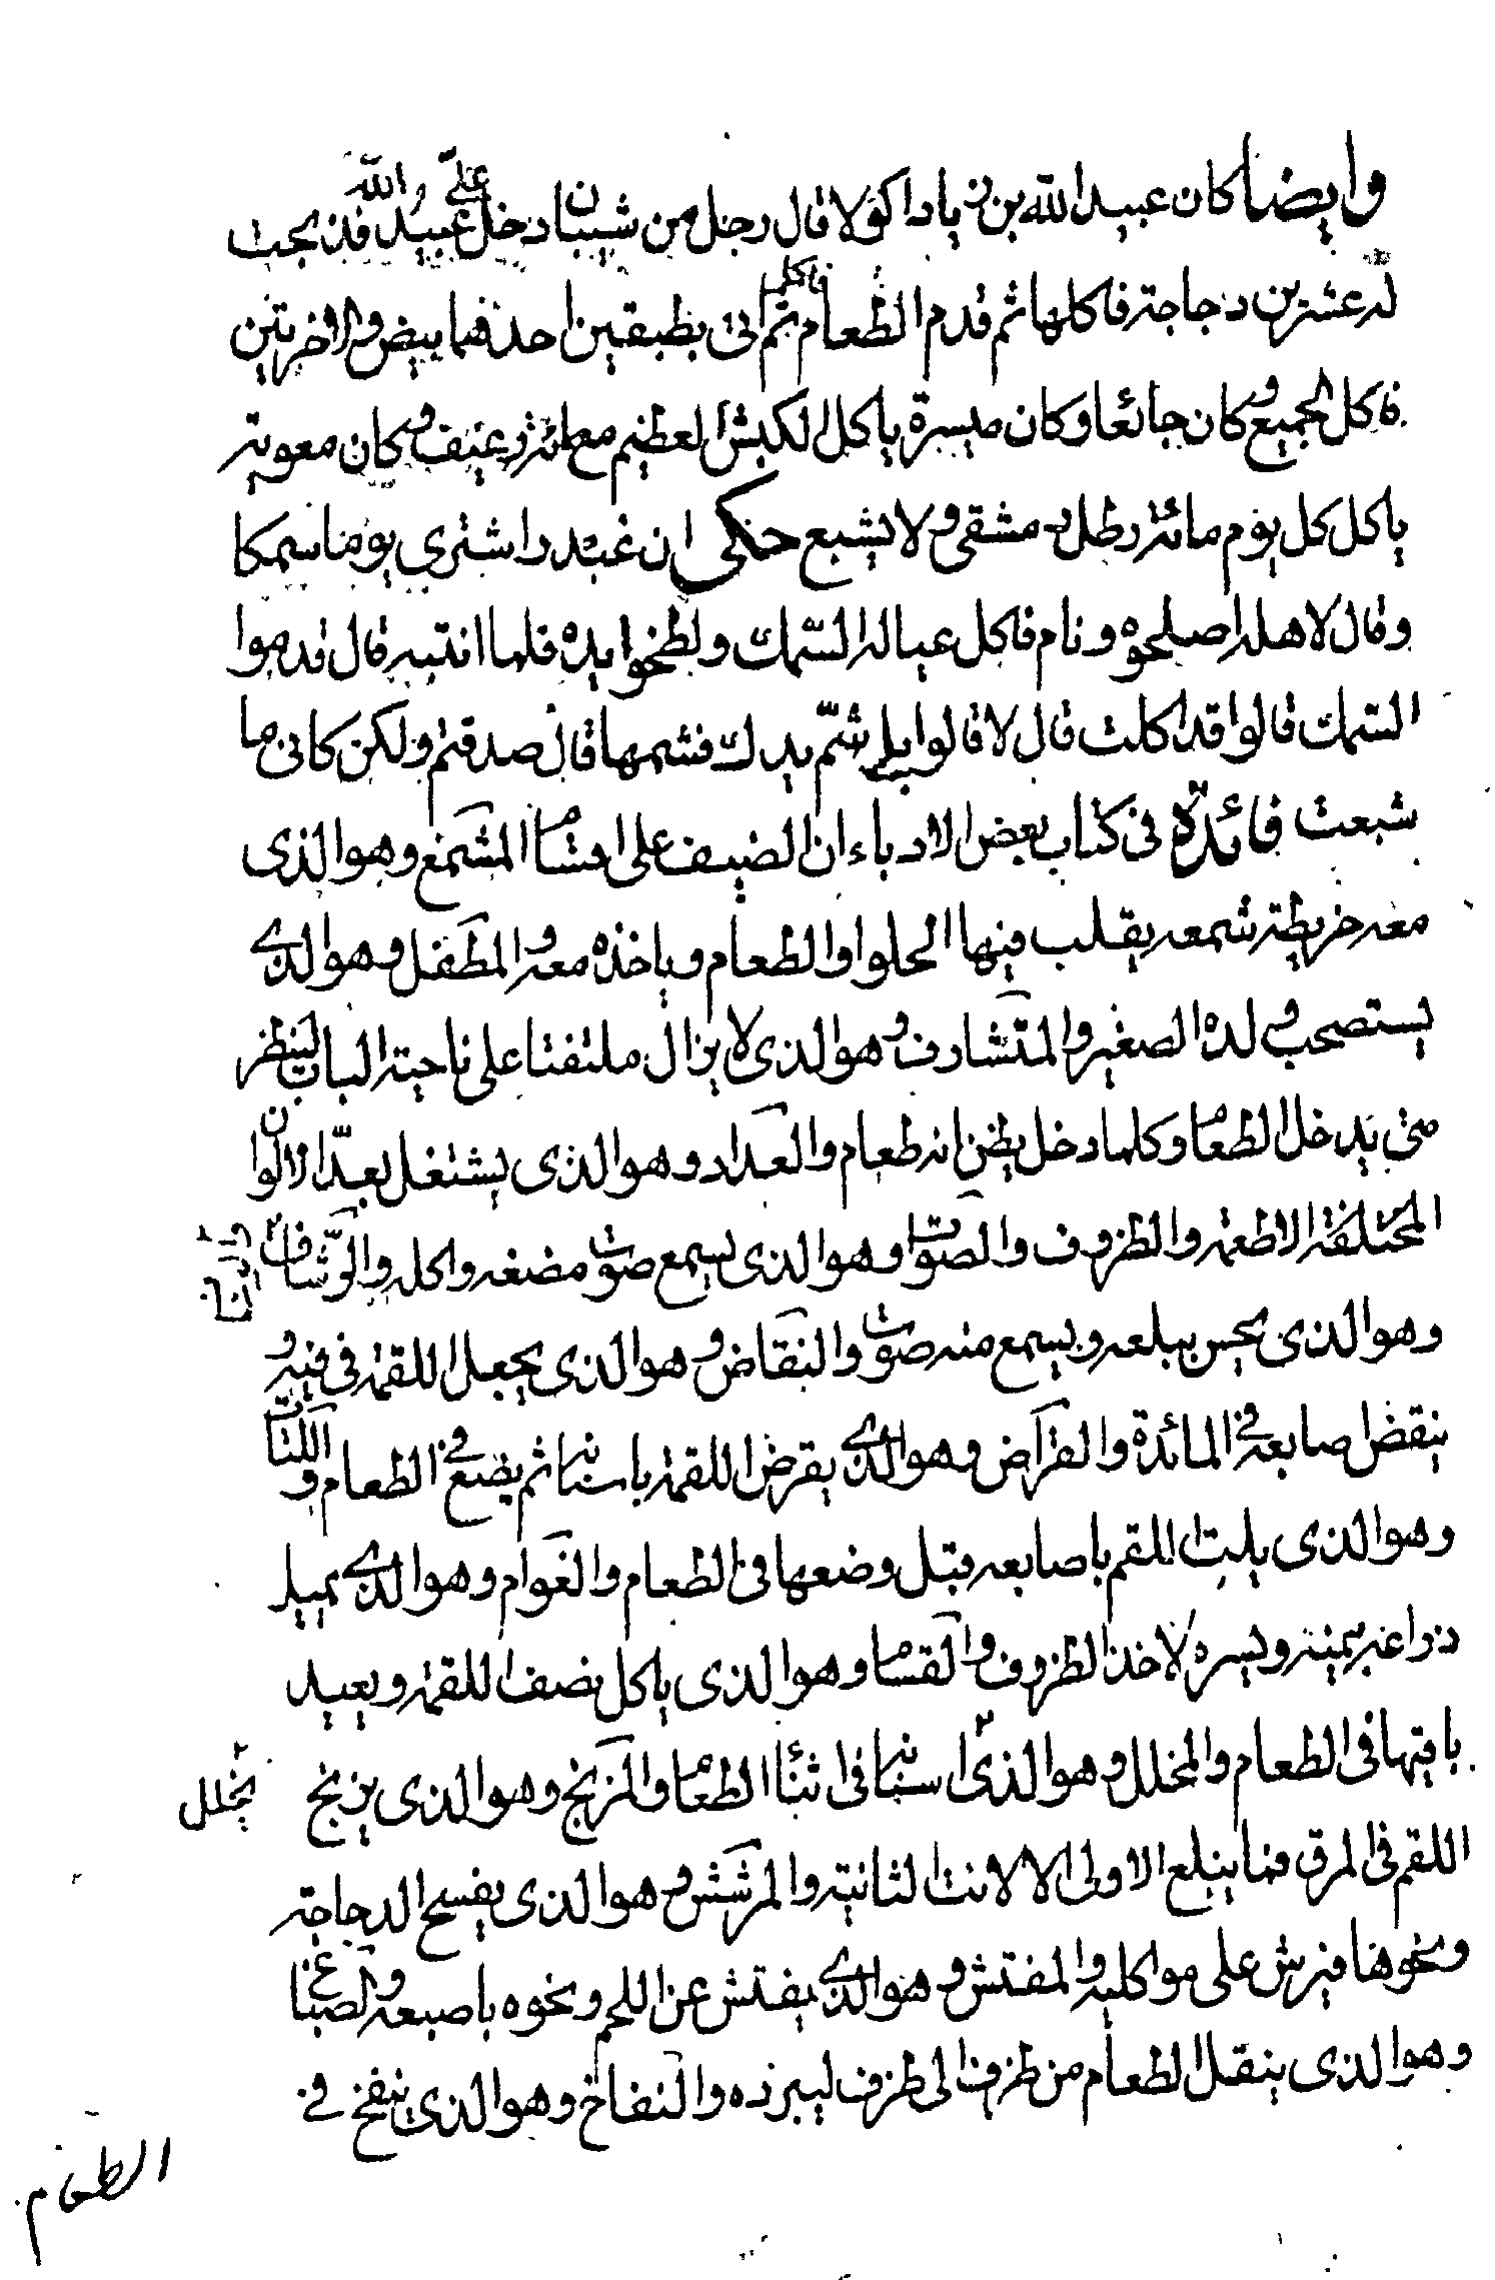 وايضا كان عبيد الله بن زياد اكولا قال رجل من شيبان دخل على عبيد الله فذبحت
له عشرين دجاجة فاكلها ثم قدم الطعام فاكله ثم اتى بطبقين احدهما بيض والاخر تين
فاكل الجميع وكان جائعا وكان ميسرة ياكل الكبش العظيم مع مائة رغيف وكان معوية
ياكل كل يوم مائة رطل دمشقى ولا يشبع حكى ان غندر اشترى يوما سمكا
وقال لاهله اصلحوه ونام فاكل عياله السمك ولطخوا يده فلما انتبه قال قدموا
السمك قالوا قد اكلت قال لا قالوا بلى شم يدك فشمها قال صدقتم ولكن كانى ما
شبعت فائدة فى كتاب بعض الادباء ان الضيف على اقسام المشمع وهو الذى
معه خريطة شمعه يقلب فيها الحلوا والطعام وياخذه معه والمطفل وهو الذى
يستصحب ولده الصغير والمتشارف وهو الذى لا يزال ملتفتا على ناحية الباب لينظر
متى يدخل الطعام وكلما دخل يظن انه طعام والعداد وهو الذى يشتغل بعد الالوان
المختلفة الاطعمة والظروف والصوات وهو الذى يسمع صوت مضغه واكله والرشاف
وهو الذى يحس ببلعه ويسمع منه صوت والنقاض وهو الذى يجعل اللقمة فى فيه و
ينقض اصابعه فى المائدة والقراض وهو الذى يقرض اللقمة باسنانه ثم يضع فى الطعام و اللتات
وهو الذى يلت اللقم باصابعه قبل وضعها فى الطعام والعوام وهو الذى يميل
ذراعه يمينه ويسره لاخذ الظروف والقسام وهو الذى ياكل نصف اللقمة ويعيد
باقيها فى الطعام والمخلل وهو الذى يخلل اسنانه فى اثناء الطعام والمزنج وهو الذى يزنج
اللقم فى المرق فما يبلع الاولى الا لانت الثانية والمرشش وهو الذى يفسخ الدجاجة
ونحوها فيرش على مواكليه والمفتش وهو الذى يفتش عن اللحم ونحوه باصبعه والصباغ
وهو الذى ينقل الطعام من ظرف الى ظرف ليبرده والنفاخ وهو الذى ينفخ فى
الطعام